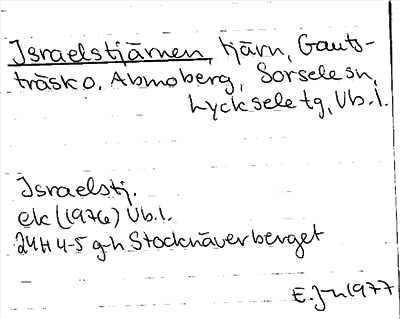 Israelstjärnen, tjärn, Gauts-
träsk o. Abmoberg, Sorsele sn,
Lycksele tg, Vb.l.
Israelstj.
ek (1976) Vb.l.
24H 4-5 g-h Stocknäverberget
E.J-n 1977